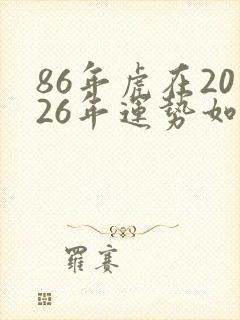 86年虎在20
26年運势如
羅賽